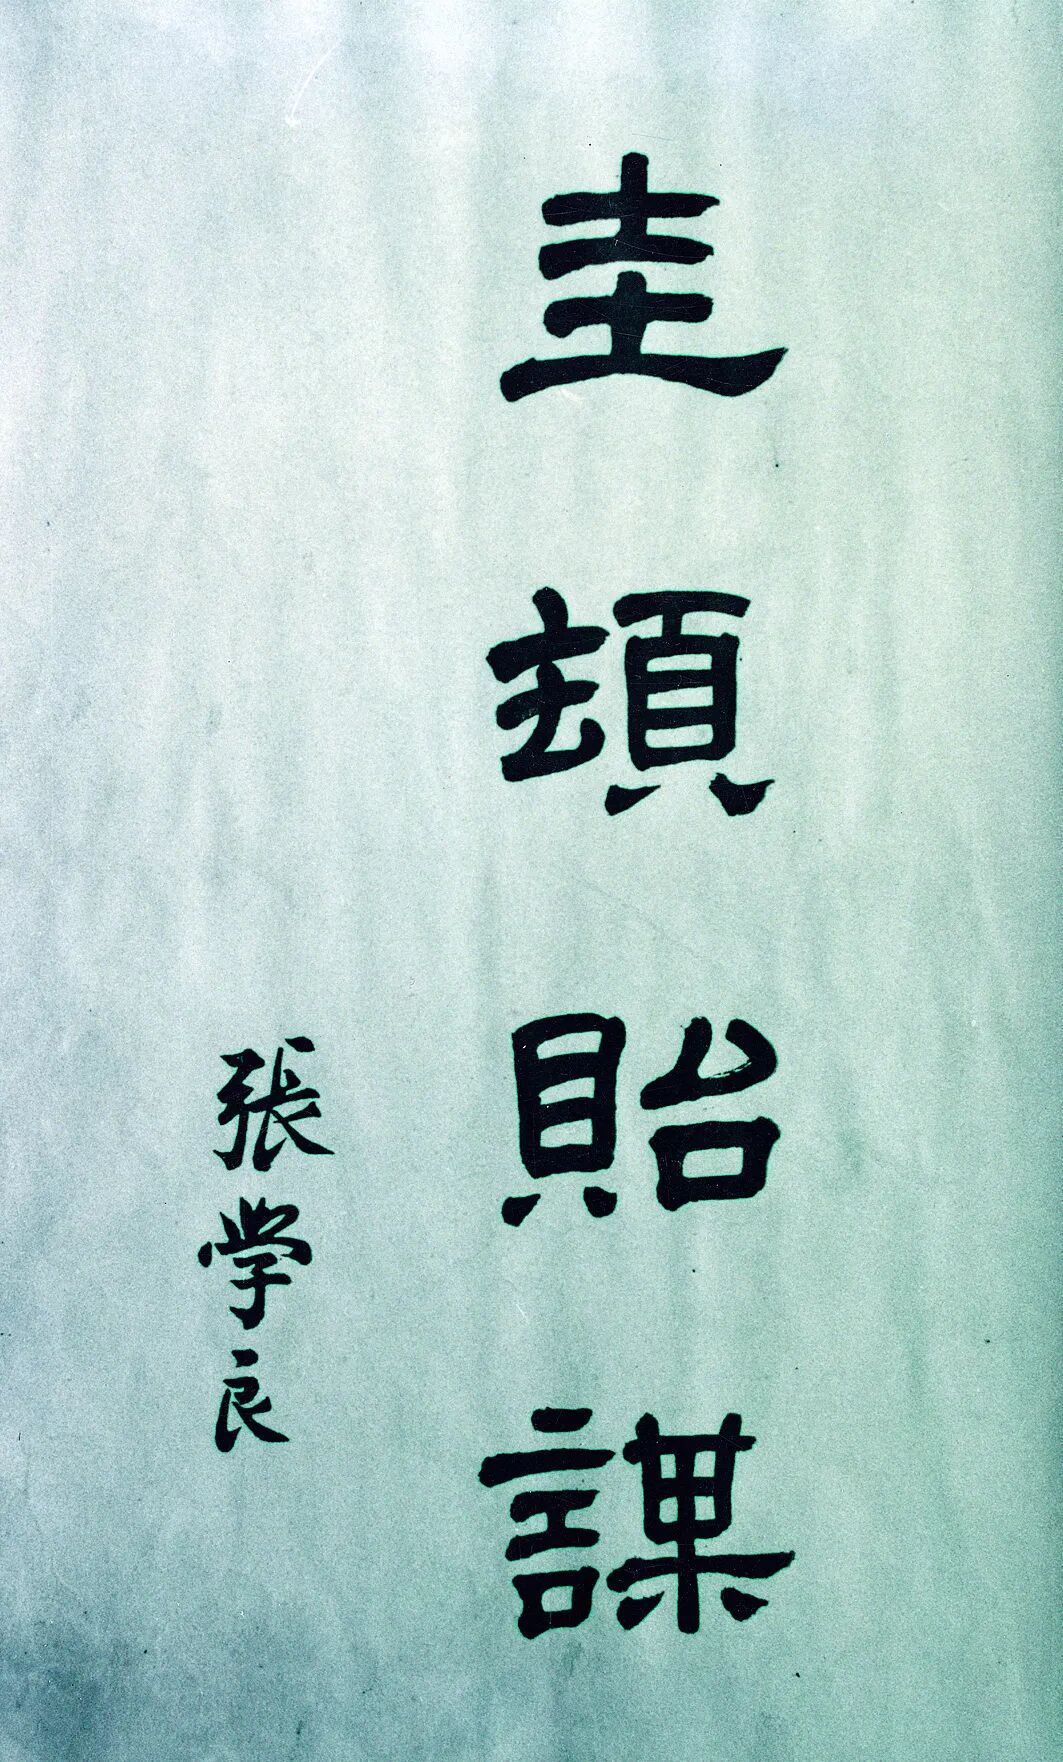 圭貽謀
張学良